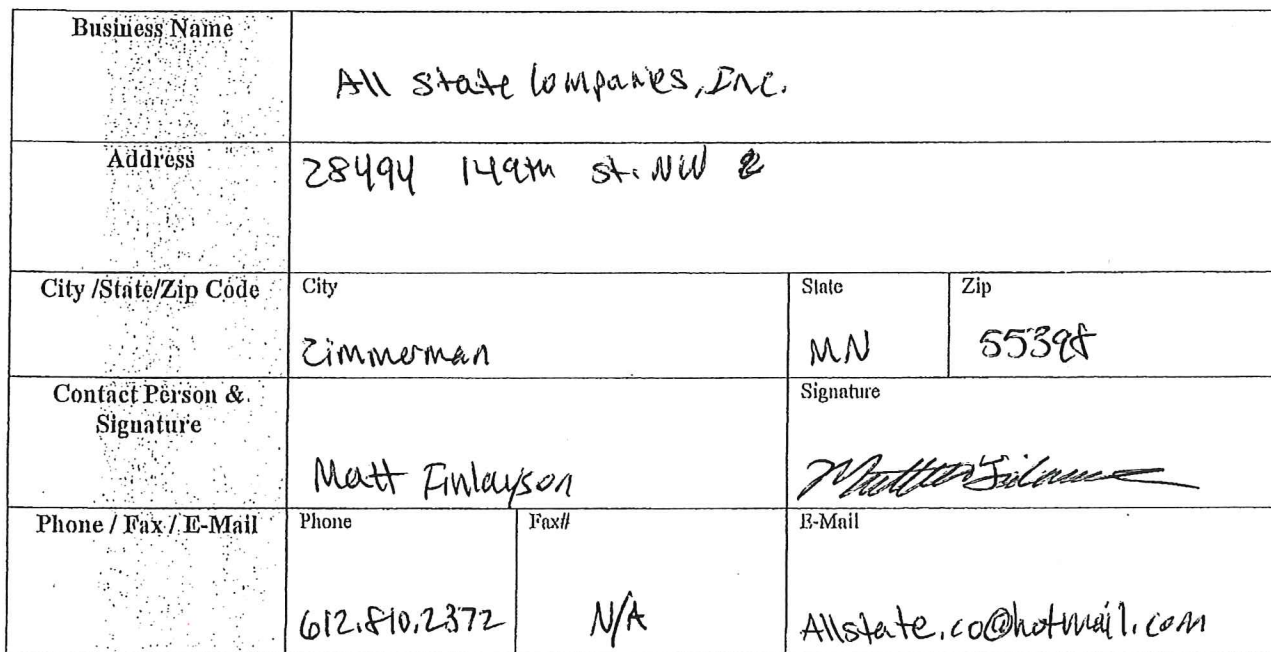 Business Name
All state Companies, Inc.
Address
28494 149th St. NW
City /State/Zip Code
City
Zimmerman
State
MN
Zip
55398
Contact Person &
Signature
Matt Finlayson
Signature
Phone / Fax / E-Mail
Phone
612.810.2372
Fax#
N/A
E-Mail
Allstate.co@hotmail.com